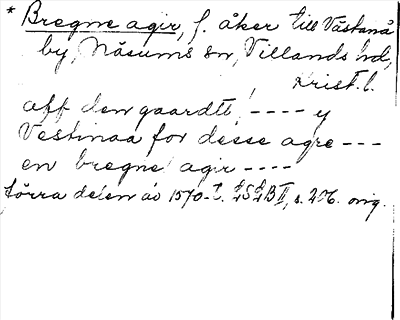 * Bregne agir, f. åker till Västanå
by, Näsums sn, Villands hd,
Krist. l.
aff den gaardtt, ---- y
Vestinaa for desse agre ---
en bregne agir ----
förra delen av 1570-t. LSLB II, s. 206. orig.